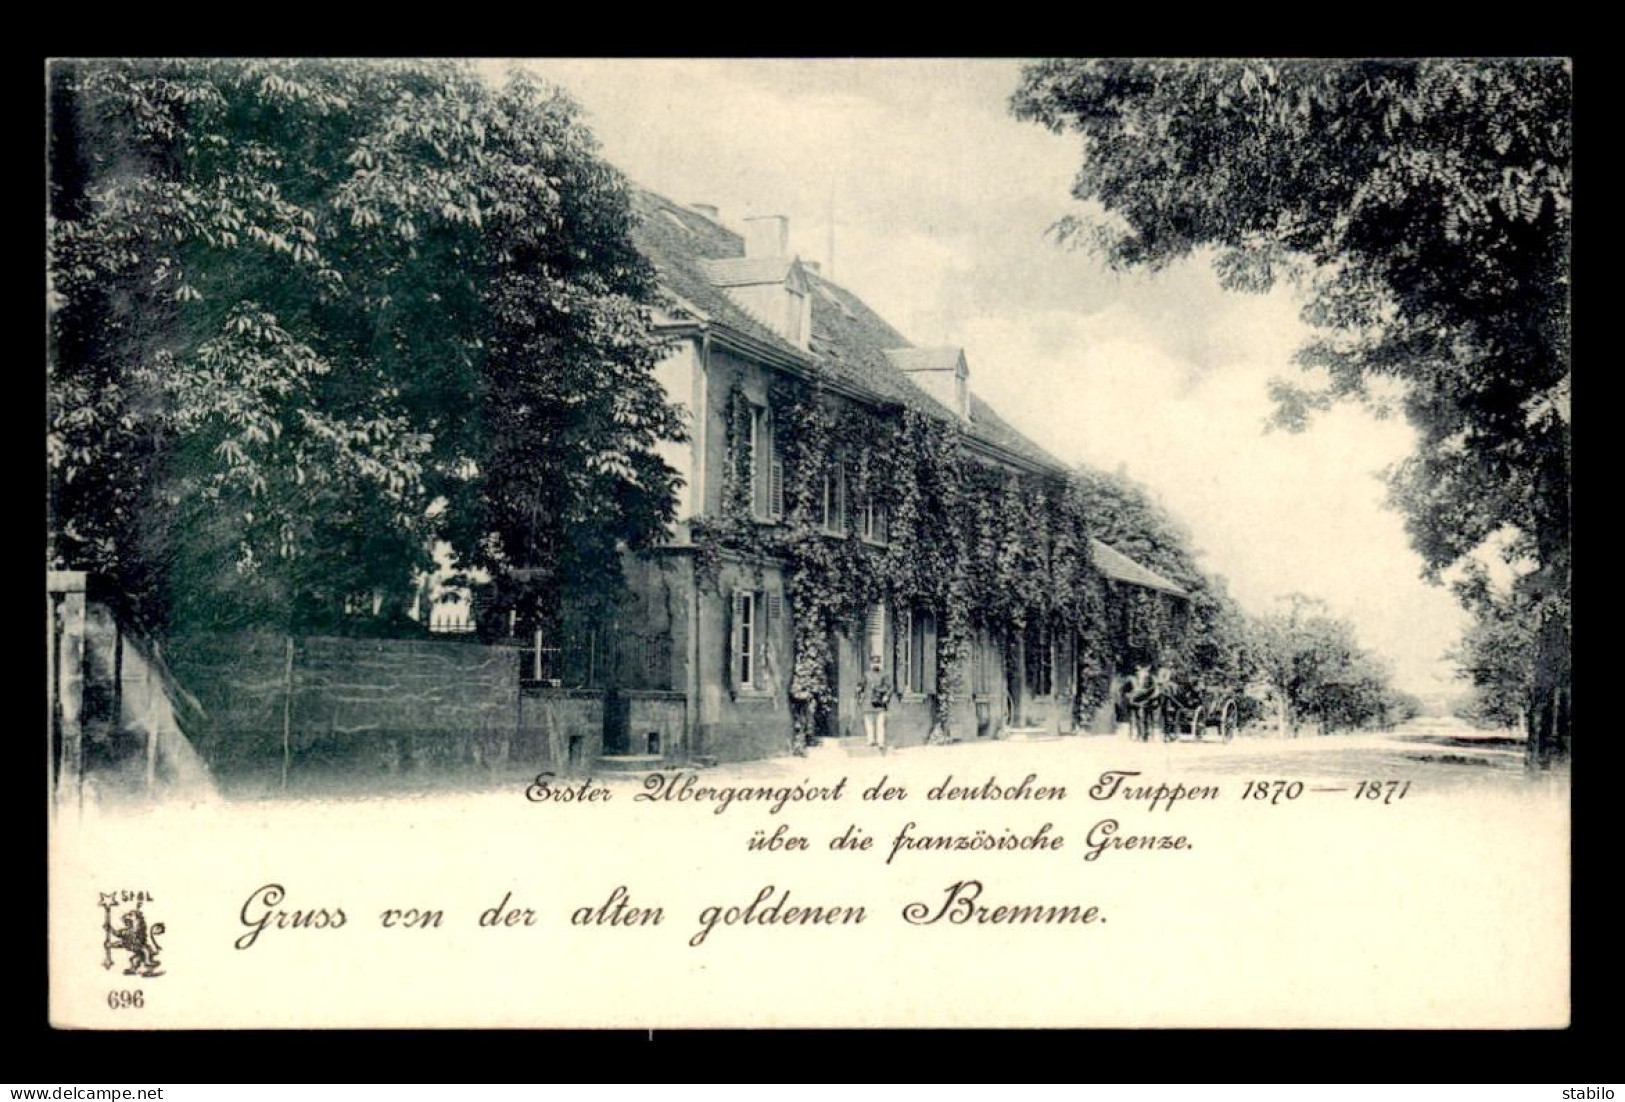 Erster Übergangsort der deutschen Truppen 1870 — 1871
über die französische Grenze.
Gruss von der alten goldenen Bremme.
696
stabilo